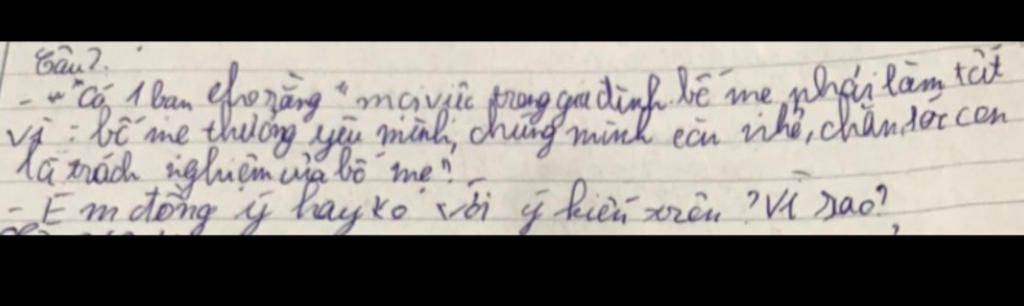 Câu 2.
- "Có 1 bạn cho rằng "mọi việc trong gia đình bố mẹ phải làm tất
vì: bố mẹ thương yêu mình, chúng mình còn nhỏ, chăm sóc con
là trách nghiệm của bố mẹ".
- Em đồng ý hay ko với ý kiến trên? Vì sao?